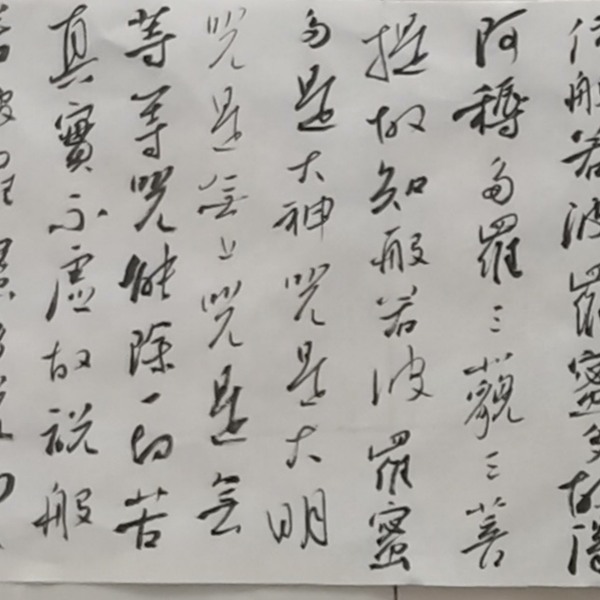 依般若波羅蜜多故得
阿耨多羅三藐三菩
提故知般若波羅蜜
多是大神咒是大明
咒是無上咒是無
等等咒能除一切苦
真實不虛故說般